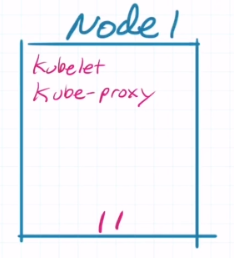 Node 1
Kubelet
Kube-proxy